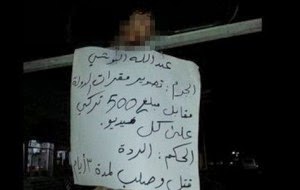 عبد الله البوشي
الجرم: تصوير مقرات لدولة
مقابل مبلغ 500 تركي
على كل فيديو.
الحكم: الردة
قتل وصلب لمدة ٣ أيام